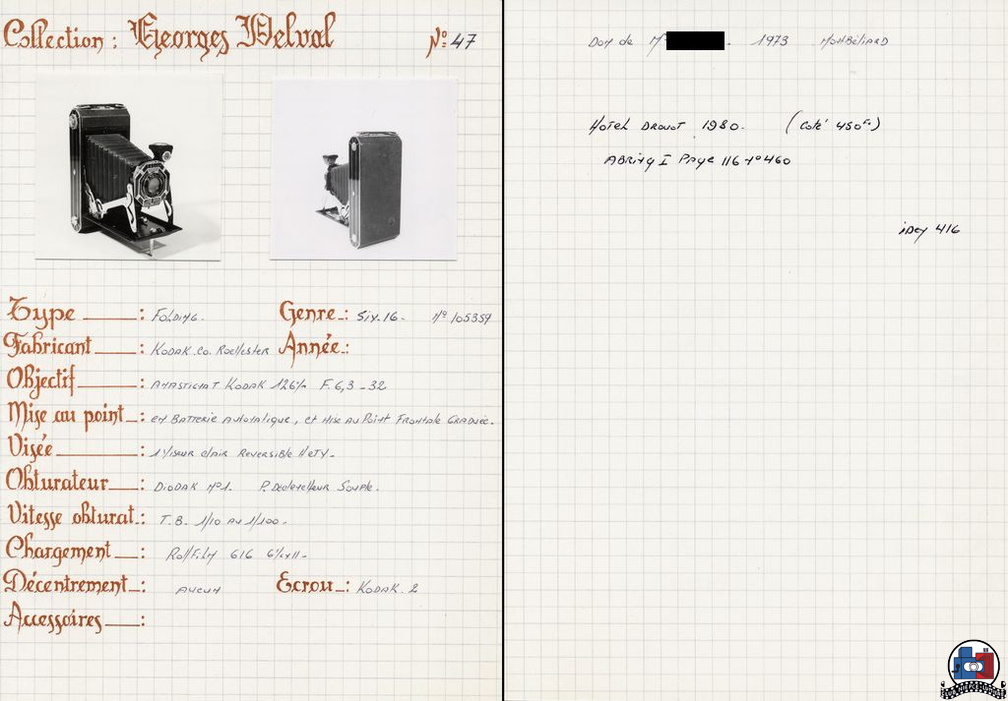 Collection : Georges Delval Nº 47
Type : Folding. Genre : Six. 16. Nº 105359
Fabricant : Kodak. Co. Rochester Année :
Objectif : Anastigmat Kodak 126 F. 6,3 - 32
Mise au point : en Batterie Automatique, et Mise au Point Frontale Graduée.
Visée : 1 Viseur clair Reversible
Obturateur : Diodak Nº1. P. Déclencheur Souple.
Vitesse obturat. : T.B. 1/10 au 1/100.
Chargement : RollFilm 616
Décentrement : aucun Ecrou : Kodak. 2
Accessoires :
Don de Mr 1973 Montbéliard
Hotel Drouot 1980. (Coté 450Fr)
Abring I Page 116 Nº 460
idem 416